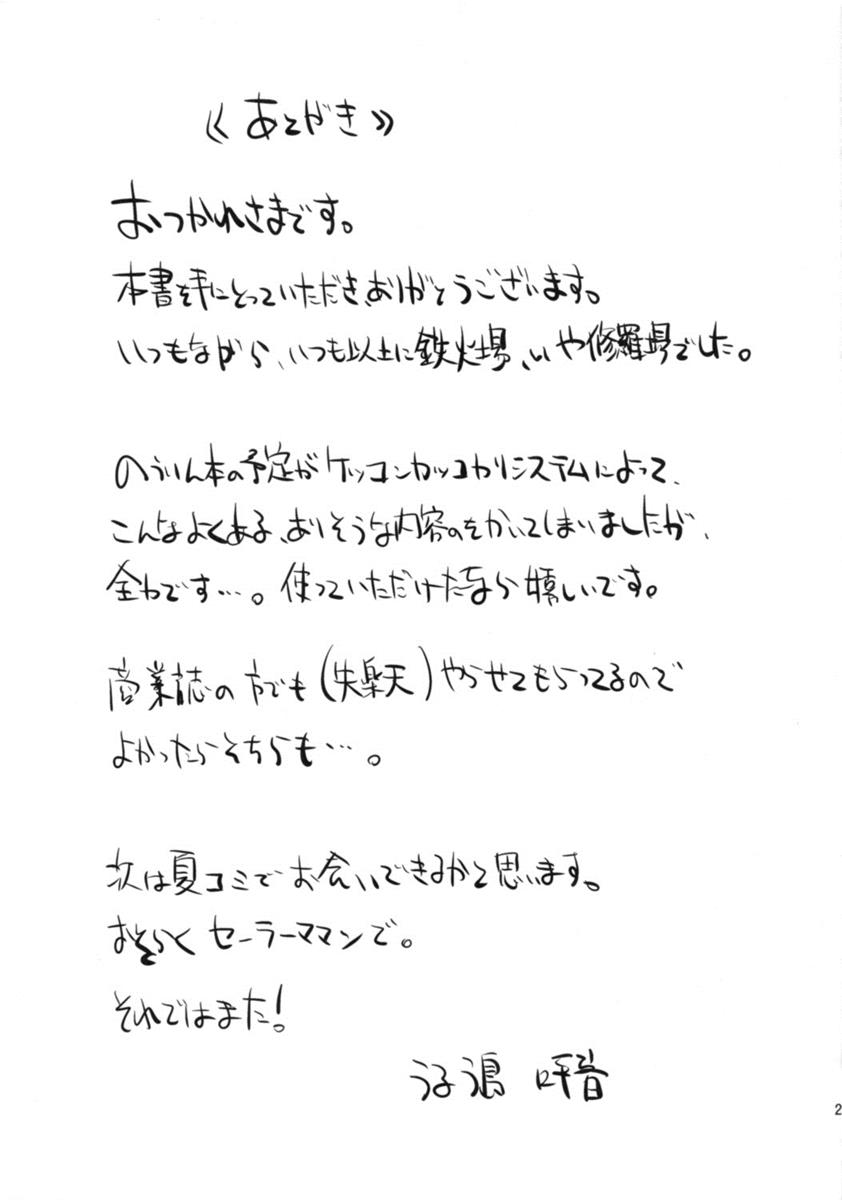 ≪あとがき≫
おつかれさまです。
本書を手にとっていただきありがとうございます。
いつもながら、いつも以上に鉄火場、いや修羅場でした。
のうりん本の予定がケッコンカッコカリシステムによって、
こんなよくある、ありそうな内容のをかいてしまいましたが、
全力です…。使っていただけたなら嬉しいです。
商業誌の方でも(失楽天)やらせてもらってるので
よかったらそちらも…。
次は夏コミでお会いできるかと思います。
おそらくセーラーママンで。
それではまた!
うるう島 呼音
2